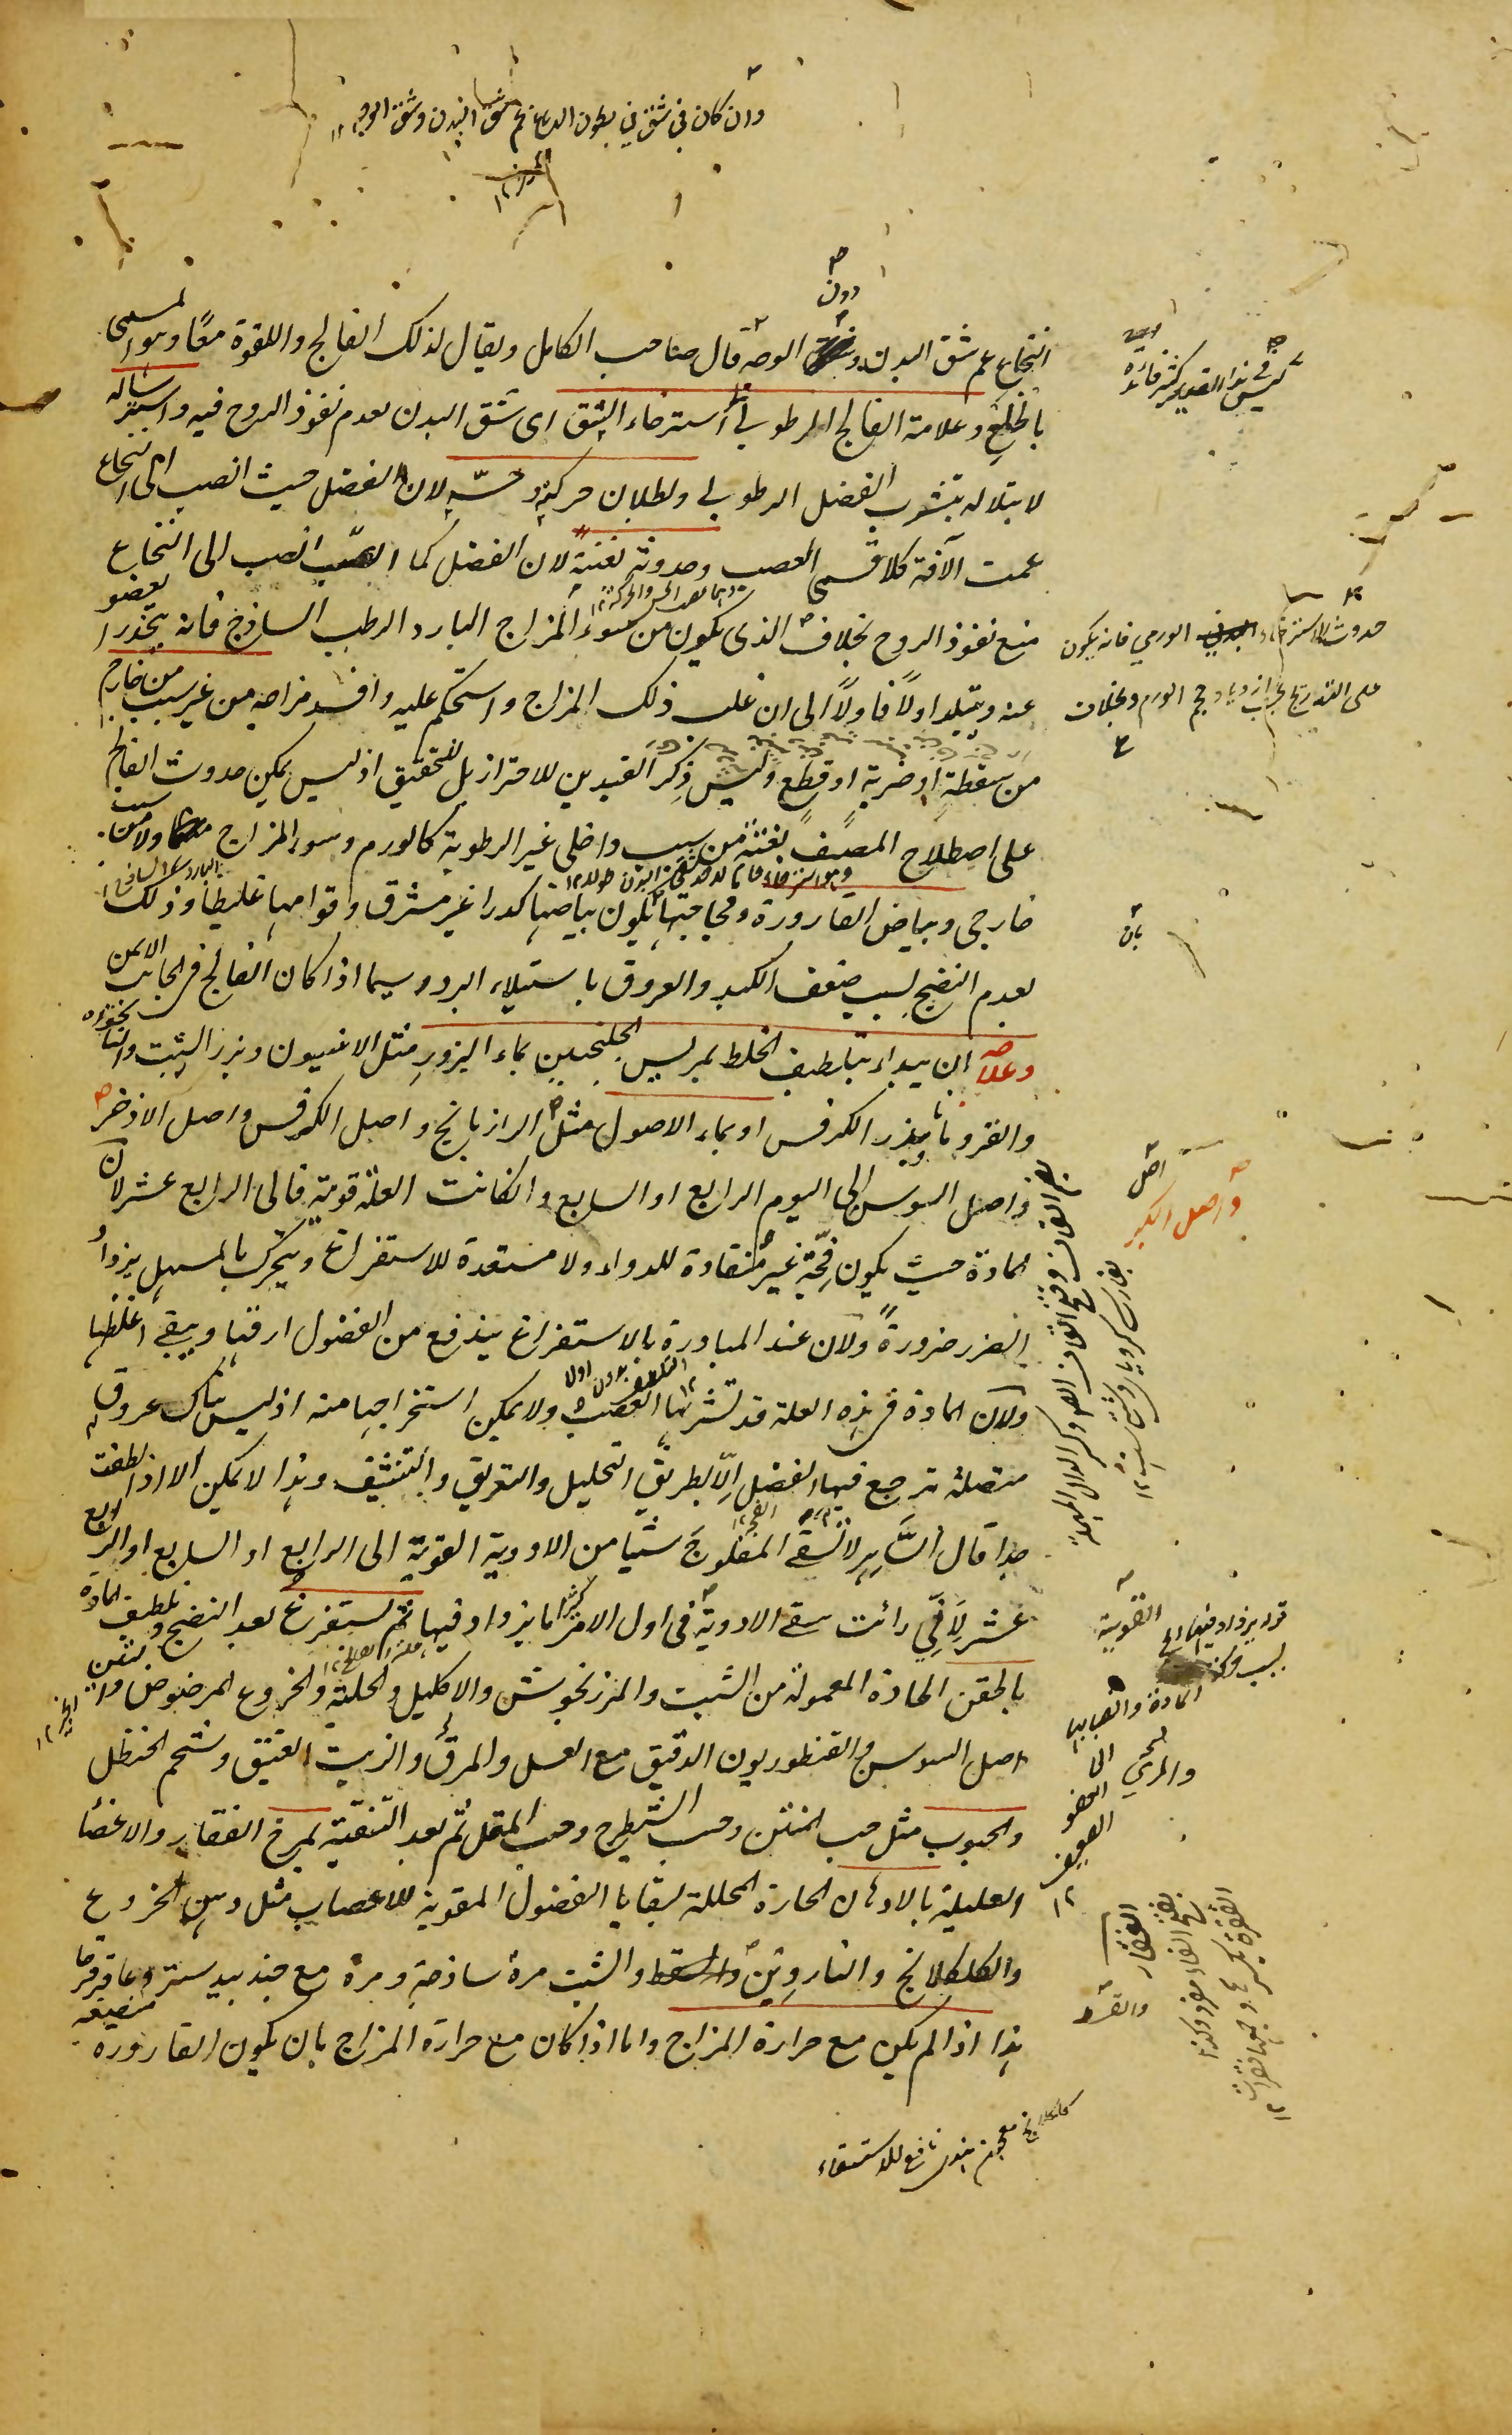 وان كان فى شق من بطون الدماغ عم شق البدن وشق الوجه ١٢
دون
النخاع عم شق البدن وشق الوجه قال صاحب الكامل ويقال لذلك الفالج واللقوة معًا وهو المسمى
بالخلع وعلامة الفالج الرطوبى استرخاء الشق اى شق البدن لعدم نفوذ الروح فيه واسترساله
لابتلاله بتشرب الفضل الرطوبى وبطلان حركته وحسّه لان الفضل حيث انصب الى النخاع
عمت الآفة كلا قسمى العصب وحدوثه بغتة لان الفضل كما انصب الى النخاع
منع نفوذ الروح بخلاف الذى يكون من سوء المزاج البارد الرطب الساذج فانه يتخدر العضو
عنه ويتبلد اولاً فاولاً الى ان غلب ذلك المزاج واستحكم عليه وافسد مزاجه من غير سبب من خارج
من سقطةٍ او ضربةٍ او قطعٍ وليس ذكر القيدين للاحتراز بل للتحقيق اذ ليس يمكن حدوث الفالج
على اصطلاح المصنف بغتة من سبب داخلى غير الرطوبة كالورم وسوء المزاج ولا من سبب
خارجى وبياض القارورة وفجاجتها يكون بياضها كدرا غير مشرق وقوامها غليظا وذلك
لعدم النضج لسبب ضعف الكبد والعروق باستيلاء البرد سيما اذا كان الفالج فى الجانب الايمن
وعلاجه ان يبدأ بتلطيف الخلط بمريس الجلنجبين بماء البزور مثل الانيسون وبزر الشبت والنانخواه
والقردمانا وبذر الكرفس او بماء الاصول مثل الرازيانج واصل الكرفس واصل الاذخر
واصل السوس الى اليوم الرابع او السابع وان كانت العلة قوية فالى الرابع عشر لان
المادة حيث يكون فجّة غير منقادة للدواء ولا مستعدة للاستفراغ ويتحرك بالمسهل يزداد
الضرر ضرورةً ولان عند المبادرة بالاستفراغ يندفع من الفضول ارقها ويبقى اغلظها
ولان المادة فى هذه العلة قد تشربها العصب ولا يمكن استخراجها منه اذ ليس هناك عروق
متصلة ترجع فيها الفضل الّا بطريق التحليل والتعريق والتنشيف وهذا لا يمكن الا اذا لطفت
جدا قال الشاهر لا تسقى المفلوجَ شيئا من الادوية القوية الى الرابع او السابع او الرابع
عشر لأنّى رأيت سقى الادوية فى اول الامر كثيرا ما يزداد فيها ثم يستفرغ بعد النضج وتلطيف المادة
بالحقن الحادة المعمولة من الشبت والمرزنجوش والاكليل والحلبة والخروع المرضوض والتين
اصل السوس والقنطوريون الدقيق مع العسل والمرى والزيت العتيق وشحم الحنظل
والحبوب مثل حب المنتن وحب الشيطرج وحب المقل ثم بعد التنقية يمرخ الفقار والاعضاء
العليلة بالادهان الحارة المحللة لبقايا الفضول المقوية للاعصاب مثل دهن الخروع
والكلكلانج والناردين والشبت مرة ساذجة ومرة مع جندبيدستر وعاقرقرحا
هذا اذا لم يكن مع حرارة المزاج واما اذا كان مع حرارة المزاج بان يكون القارورة منصبغة
ليس فى هذا القيد كثير فائدة
حدوث الاسترخاء الورمى فانه يكون
على التدريج بحسب ازدياد حجم الورم وبخلاف
بان
اصل
واصل الكبر
القوية
قوله يزداد فيها
لسبب حركة
المادة وانصبابها
الى
العضو
الضعيف
١٢
والمرى
والقسط
الفقار
بفتح الفاء
كلكلانج معجون هندى نافع للاستسقاء